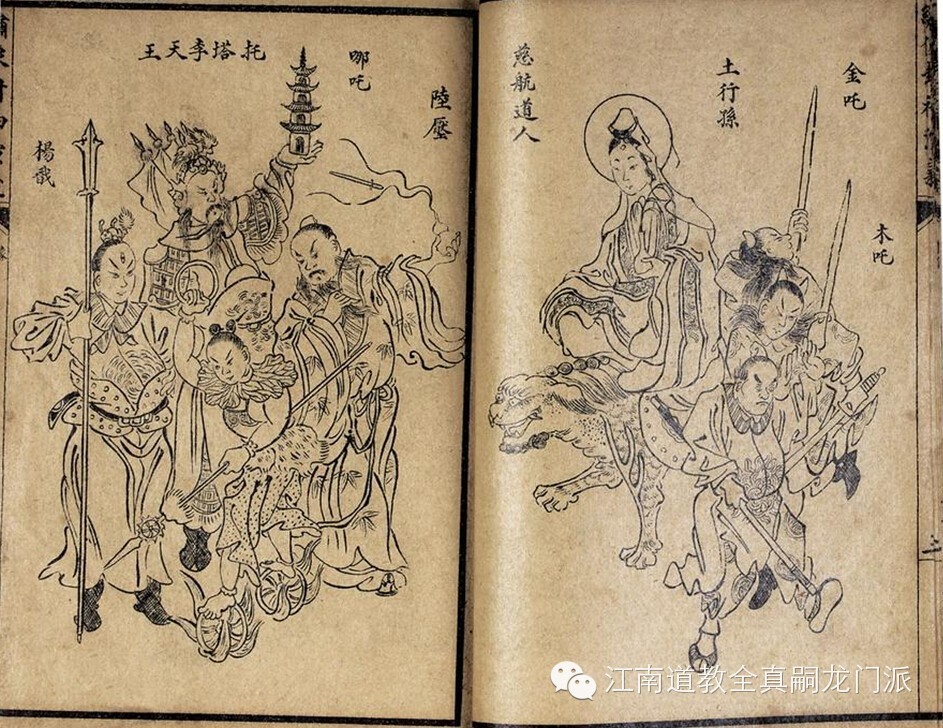 金吒
木吒
土行孫
慈航道人
陸壓
哪吒
托塔李天王
楊戩
江南道教全真嗣龙门派